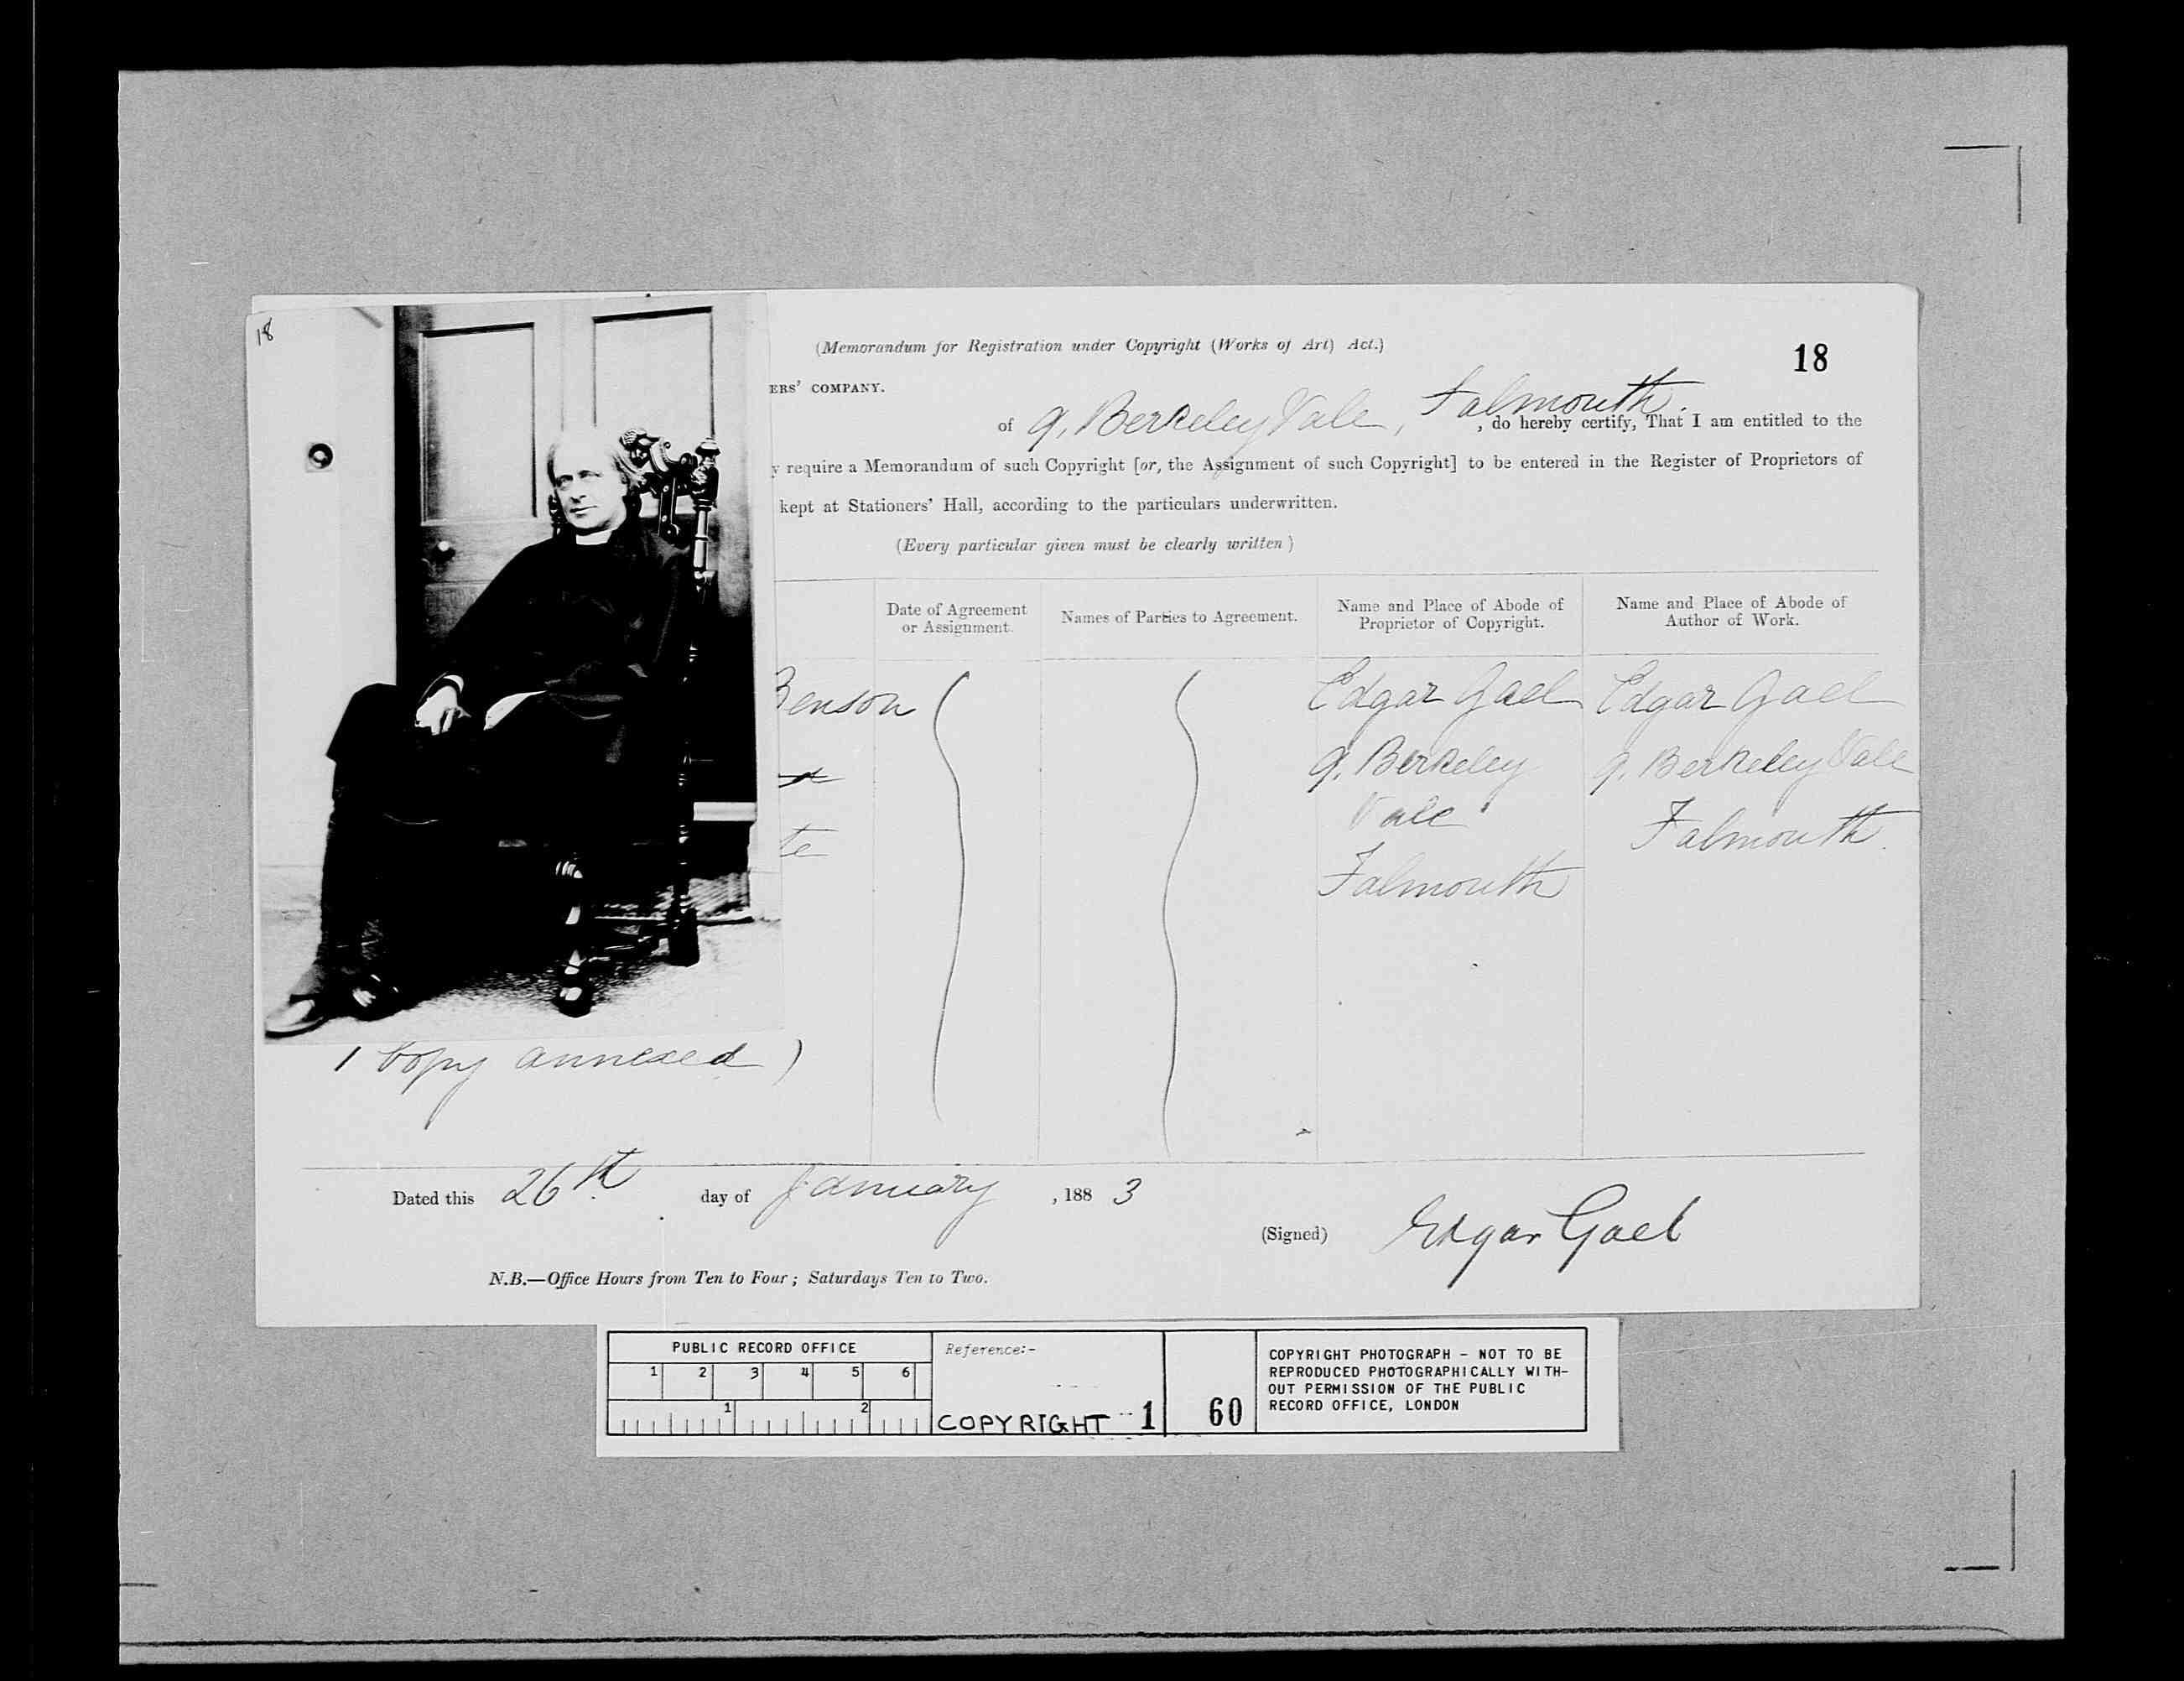 18
(Memorandum for Registration under Copyright (Works of Art) Act.)
18
ERS' COMPANY.
of 9, Berkeley Vale, Falmouth. , do hereby certify, That I am entitled to the
y require a Memorandum of such Copyright [or, the Assignment of such Copyright] to be entered in the Register of Proprietors of
kept at Stationers' Hall, according to the particulars underwritten.
(Every particular given must be clearly written)
Date of Agreement
or Assignment.
Names of Parties to Agreement.
Name and Place of Abode of
Proprietor of Copyright.
Name and Place of Abode of
Author of Work.
Benson
te
Edgar Gael
9, Berkeley
Vale
Falmouth
Edgar Gael
9, Berkeley Vale
Falmouth.
1 Copy annexed )
Dated this 26th day of January , 188 3
(Signed) Edgar Gael
N.B.—Office Hours from Ten to Four ; Saturdays Ten to Two.
PUBLIC RECORD OFFICE
1 2 3 4 5 6
1 2
Reference:-
COPYRIGHT 1
60
COPYRIGHT PHOTOGRAPH - NOT TO BE
REPRODUCED PHOTOGRAPHICALLY WITH-
OUT PERMISSION OF THE PUBLIC
RECORD OFFICE, LONDON